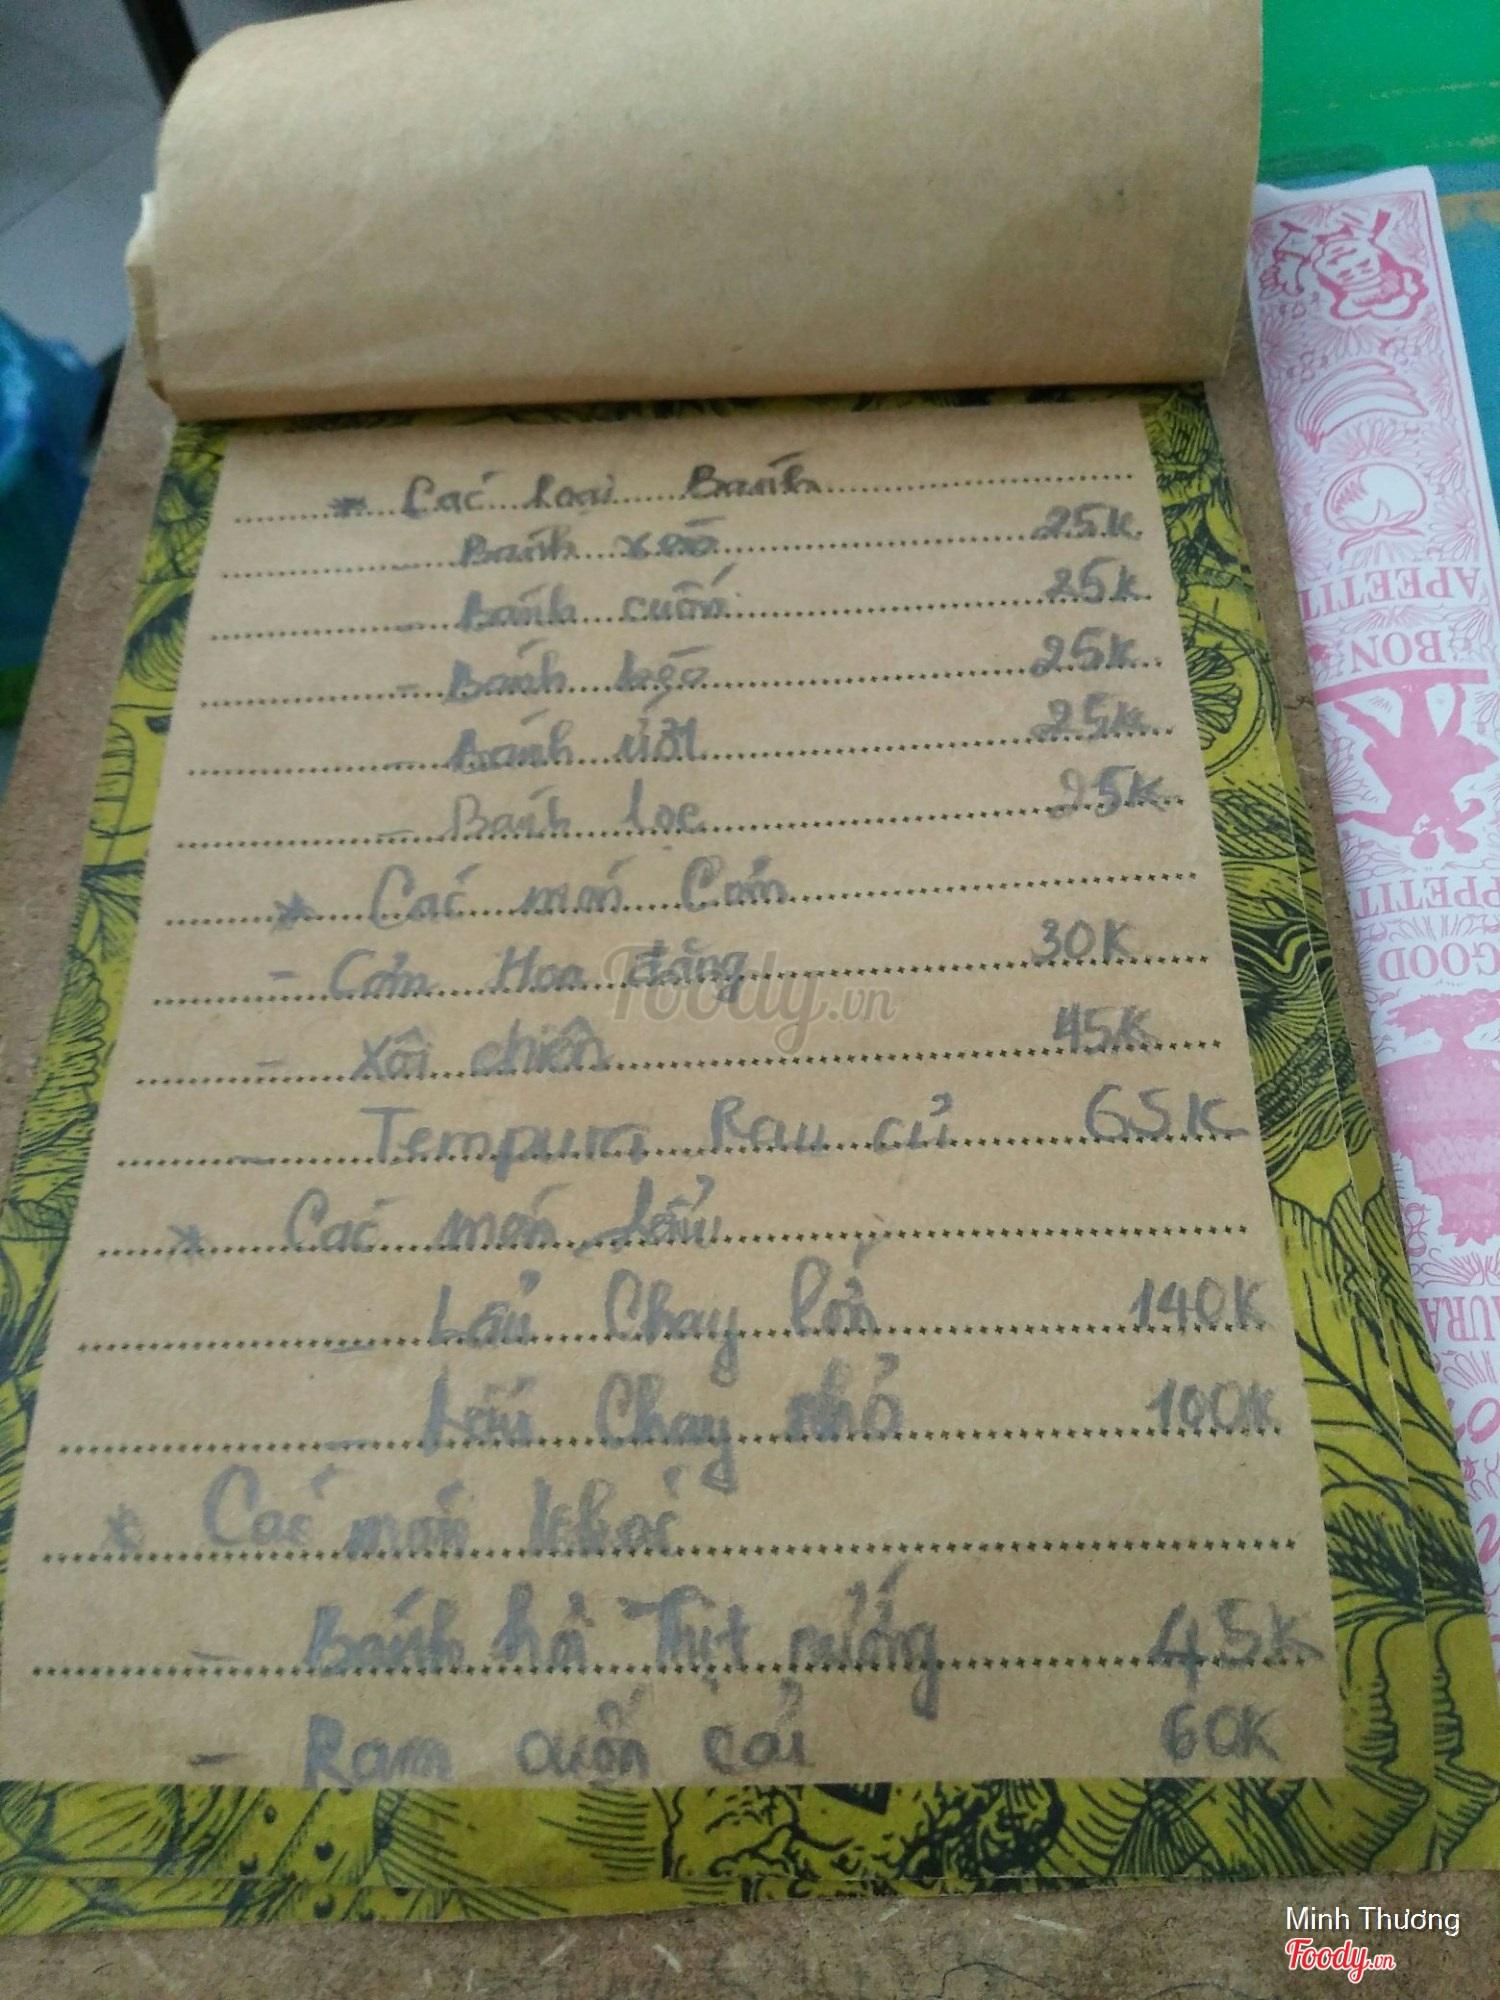 * Các loại Bánh
- Bánh xèo 25K
- Bánh cuốn 25K
- Bánh bèo 25K
- Bánh ướt 25K
- Bánh lọc 25K
* Các món Cơm
- Cơm Hoa đăng 30K
- Xôi chiên 45K
- Tempura Rau củ 65K
* Các món Lẩu
- Lẩu Chay lớn 140K
- Lẩu Chay nhỏ 100K
* Các món khác
- Bánh hỏi Thịt nướng 45K
- Ram cuốn cải 60K
Foody.vn
BON
APETIT
GOOD
Minh Thương
Foody.vn